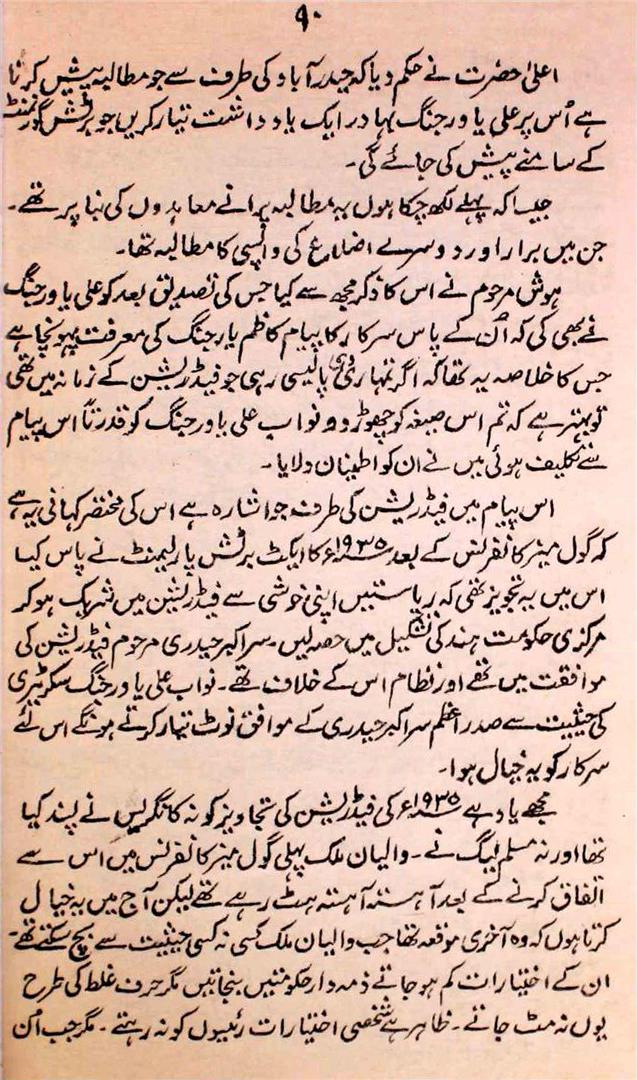 ۹۰
اعلیٰ حضرت نے حکم دیا کہ حیدرآباد کی طرف سے جو مطالبہ پیش کرنا
ہے اُس پر علی یاور جنگ بہادر ایک یادداشت تیار کریں جو برٹش گورنمنٹ
کے سامنے پیش کی جائے گی۔
جیسا کہ پہلے لکھ چکا ہوں یہ مطالبہ پرانے معاہدوں کی بنا پر تھے۔
جن میں برار اور دوسرے اضلاع کی واپسی کا مطالبہ تھا۔
ہوش مرحوم نے اس کا ذکر مجھ سے کیا جس کی تصدیق بعد کو علی یاور جنگ
نے بھی کی کہ اُن کے پاس سرکار کا پیام کاظم یار جنگ کی معرفت پہونچا ہے
جس کا خلاصہ یہ تھا کہ اگر تمہاری وہی پالیسی رہی جو فیڈریشن کے زمانہ میں تھی
تو بہتر ہے کہ تم اس صیغہ کو چھوڑ دو نواب علی یاور جنگ کو قدرتاً اس پیام
سے تکلیف ہوئی میں نے ان کو اطینان دلایا۔
اس پیام میں فیڈریشن کی طرف جو اشارہ ہے اس کی مختصر کہانی یہ ہے
کہ گول میز کانفرنس کے بعد ۱۹۳۵ء کا ایکٹ برٹش پارلیمنٹ نے پاس کیا
اس میں یہ تجویز تھی کہ ریاستیں اپنی خوشی سے فیڈریشن میں شریک ہو کر
مرکزی حکومت ہند کی تشکیل میں حصہ لیں۔ سر اکبر حیدری مرحوم فیڈریشن کی
موافقت میں تھے اور نظام اس کے خلاف تھے۔ نواب علی یاور جنگ سکرٹیری
کی حیثیت سے صدر اعظم سر اکبر حیدری کے موافق نوٹ تیار کرتے ہونگے اس لئے
سرکار کو یہ خیال ہوا۔
مجھے یاد ہے ۱۹۳۵ء کی فیڈریشن کی تجاویز کو نہ کانگریس نے پسند کیا
تھا اور نہ مسلم لیگ نے۔ والیان ملک پہلی گول میز کانفرنس میں اس سے
اتفاق کرنے کے بعد آہستہ آہستہ ہٹ رہے تھے لیکن آج میں یہ خیال
کرتا ہوں کہ وہ آخری موقعہ تھا جب والیان ملک کسی نہ کسی حیثیت سے بچ سکتے تھے۔
ان کے اختیارات کم ہو جاتے ذمہ دار حکومتیں بنجاتیں مگر حرف غلط کی طرح
یوں نہ مٹ جاتے۔ ظاہر ہے شخصی اختیارات رئیسوں کو نہ رہتے۔ مگر جب اُن